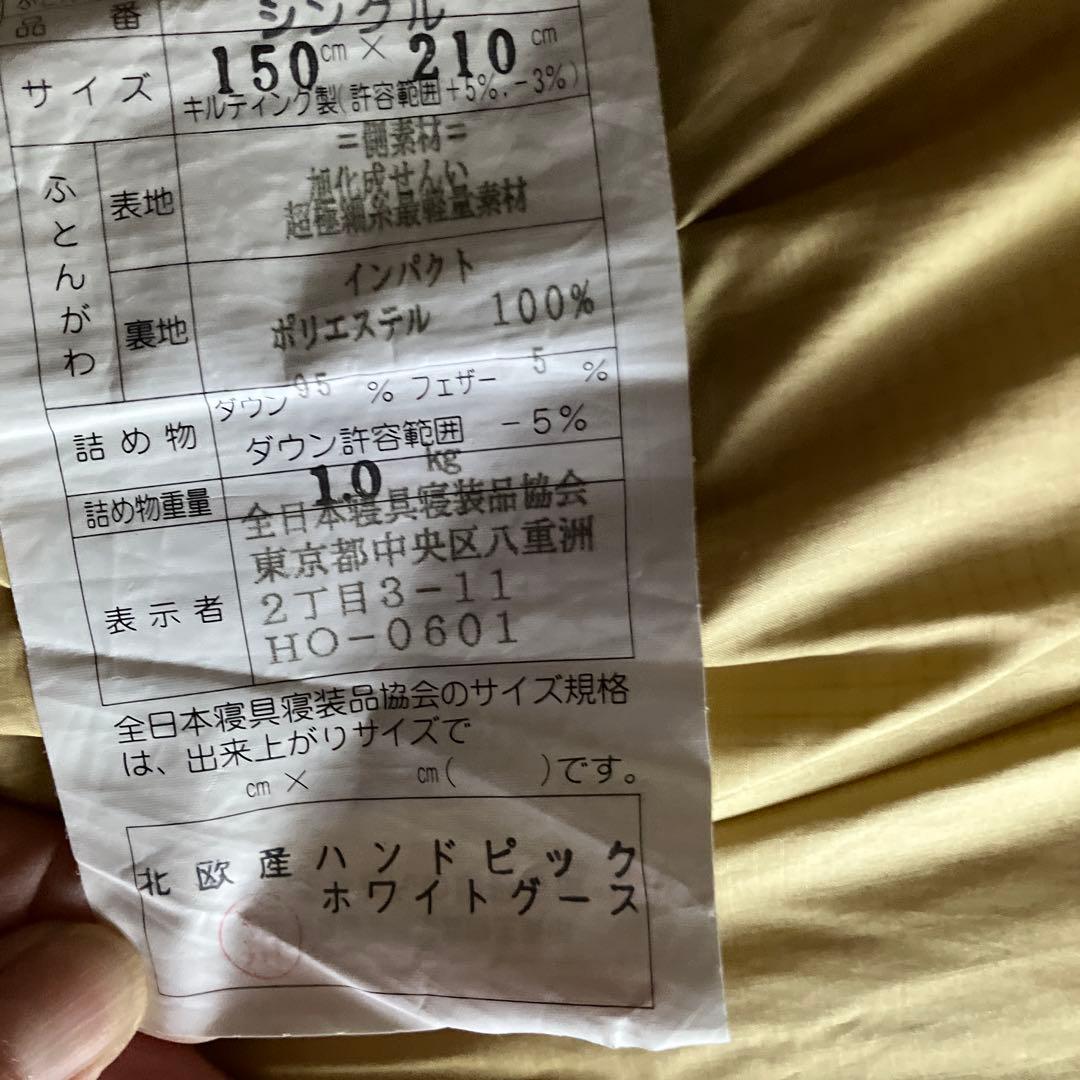 品番 シングル
サイズ 150cm × 210cm
キルティング製(許容範囲+5%,-3%)
ふとんがわ
表地
=側素材=
旭化成せんい
超極細糸最軽量素材
裏地
インパクト
ポリエステル 100%
詰め物
ダウン 95 % フェザー 5 %
ダウン許容範囲 -5%
詰め物重量 1.0 kg
表示者
全日本寝具寝装品協会
東京都中央区八重洲
2丁目3-11
HO-0601
全日本寝具寝装品協会のサイズ規格
は、出来上がりサイズで
cm × cm( )です。
北欧産ハンドピック
ホワイトグース